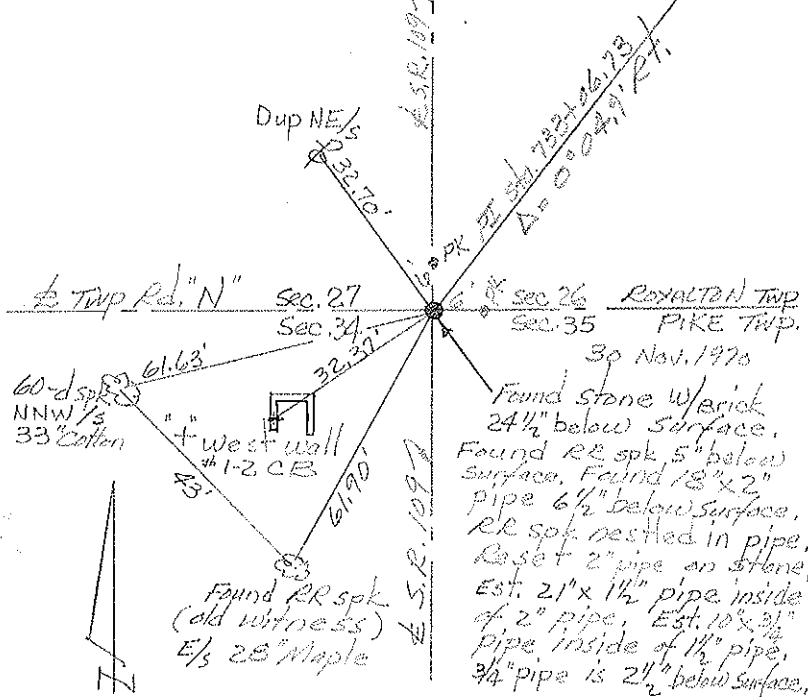 ℄ S.R. 109
PI Sta. 733+06.73
Δ = 0°04.9' Rt.
Dup NE/s
32.70'
6' PK
℄ Twp Rd. "N"
Sec. 27
6' PK
Sec. 26
ROYALTON TWP
Sec. 34
Sec. 35
PIKE TWP.
30 Nov. 1970
61.63'
32.37'
60-d spk
NNW/s
33" Cotton
"+" west wall
# 1-2 CB
43'
61.90'
℄ S.R. 109
Found RR spk
(old witness)
E/s 28" Maple
N
Found stone W/Brick
24½" below surface.
Found RR spk 5" below
surface. Found 18" x 2"
pipe 6½" below surface.
RR spk nestled in pipe.
Reset 2" pipe on stone.
Est. 21" x 1½" pipe inside
of 2" pipe. Est. 10" x ¾"
pipe inside of 1½" pipe.
¾" pipe is 2½" below surface.